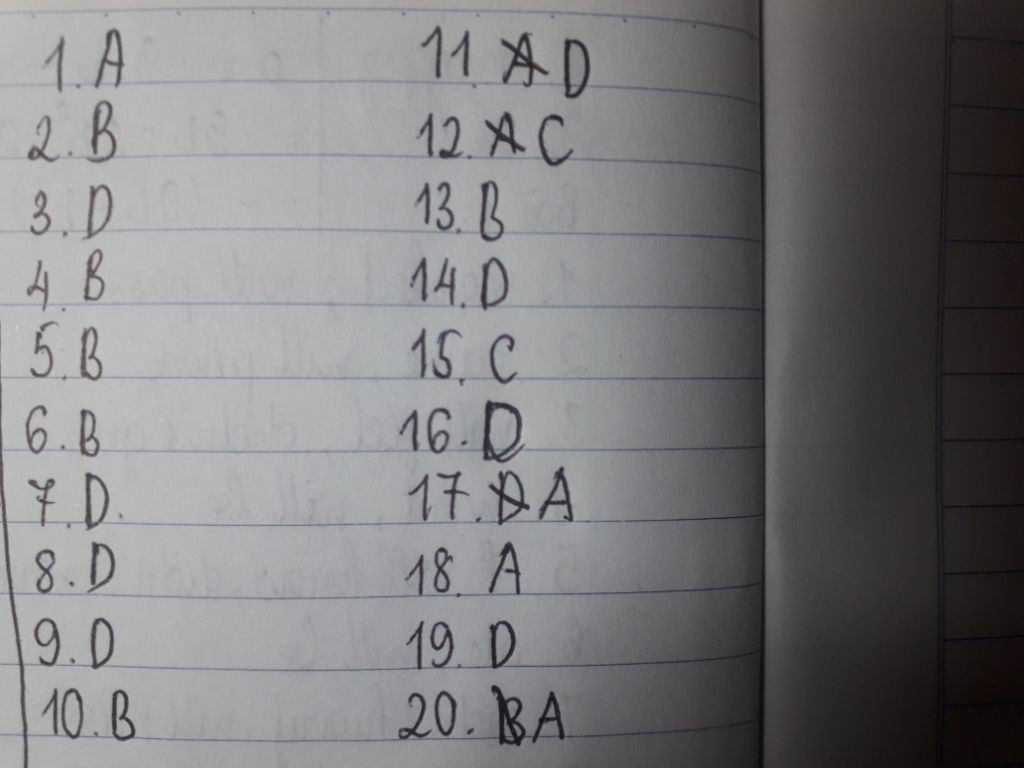 1. A
2. B
3. D
4. B
5. B
6. B
7. D.
8. D
9. D
10. B
11. A D
12. A C
13. B
14. D
15. C
16. D
17. D A
18. A
19. D
20. B A